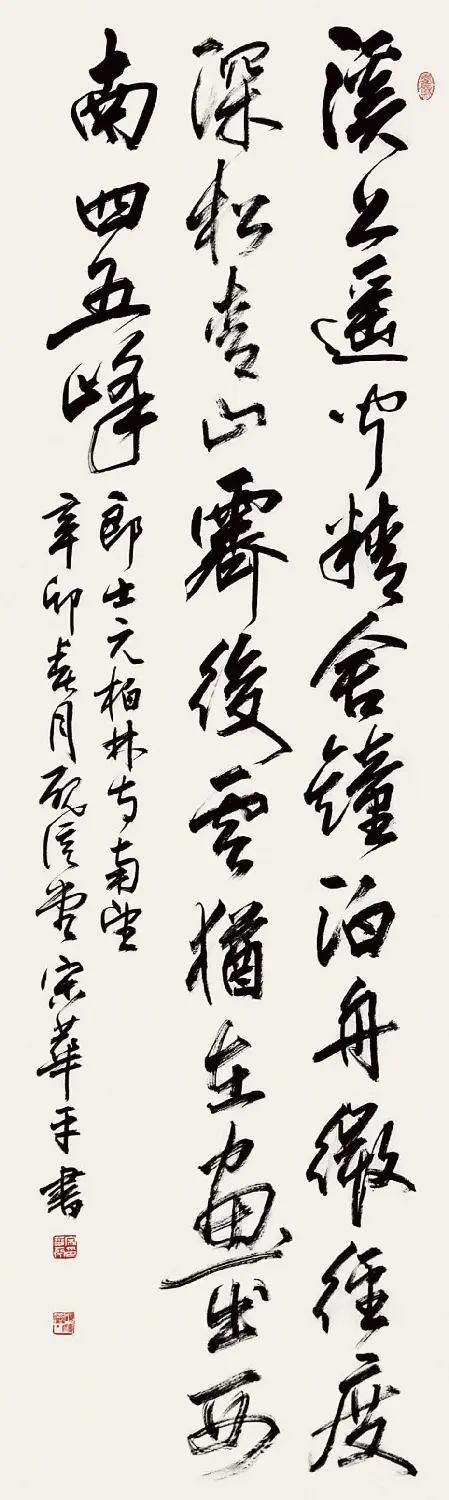 溪上遥闻精舍钟泊舟微径度
深松青山霽後云猶在画出西
南四五峰
郎士元柏林寺南望
辛卯春月砚溪堂宋華平書